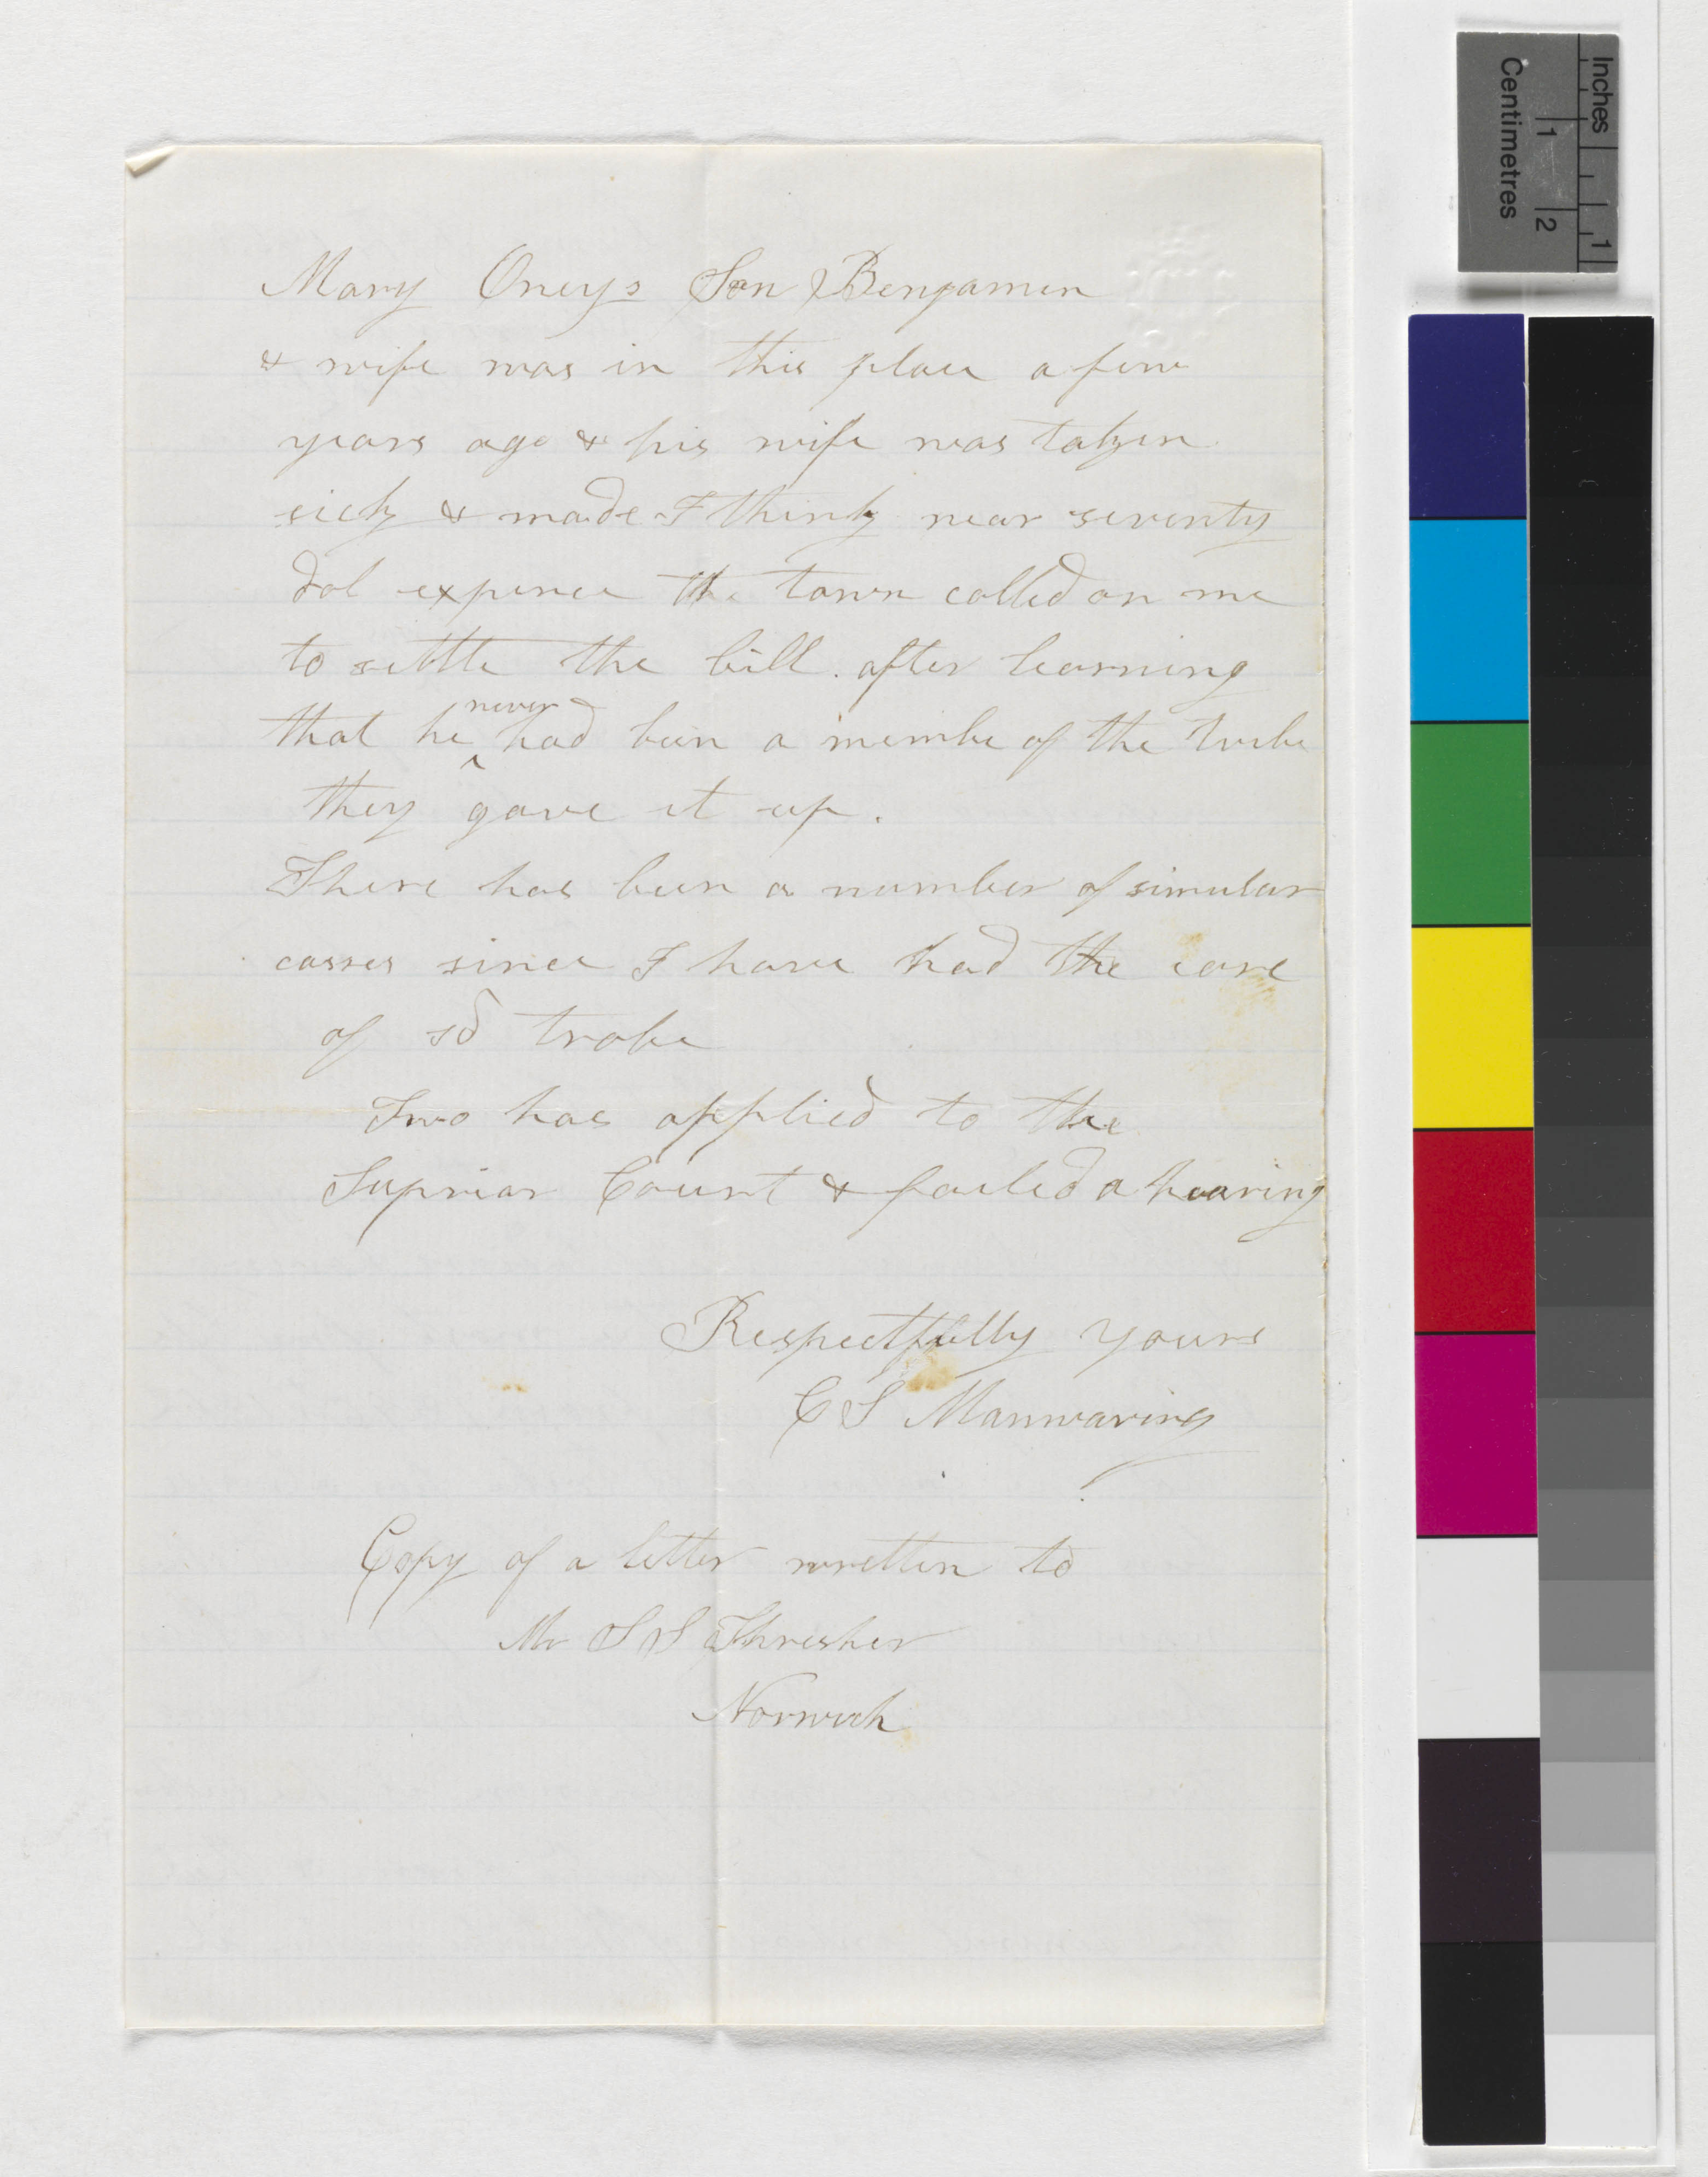 Mary Oneys Son Benjamin
& wife was in this place a few
years ago & his wife was taken
sick & made I think near seventy
dol expence the town called on me
to settle the bill. after learning
that he never had been a membe of the tribe
they gave it up.
There has been a number of simular
casses since I have had the care
of sd trabe
Two has applied to the
Suprior Court & failed a hearing
Respectfully yours
C S Manwaring
Copy of a letter written to
Mr S S Thresher
Norwich
Inches
1
Centimetres
1 2